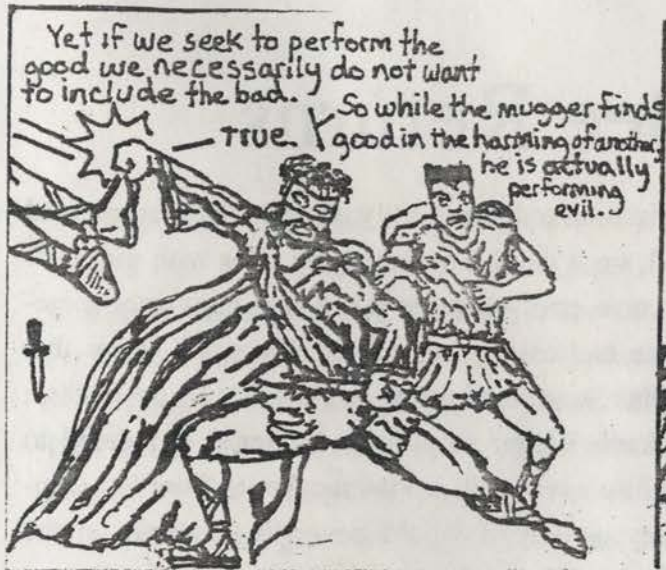 Yet if we seek to perform the
good we necessarily do not want
to include the bad.
— TRUE.
So while the mugger finds
good in the harming of another,
he is actually
performing
evil.